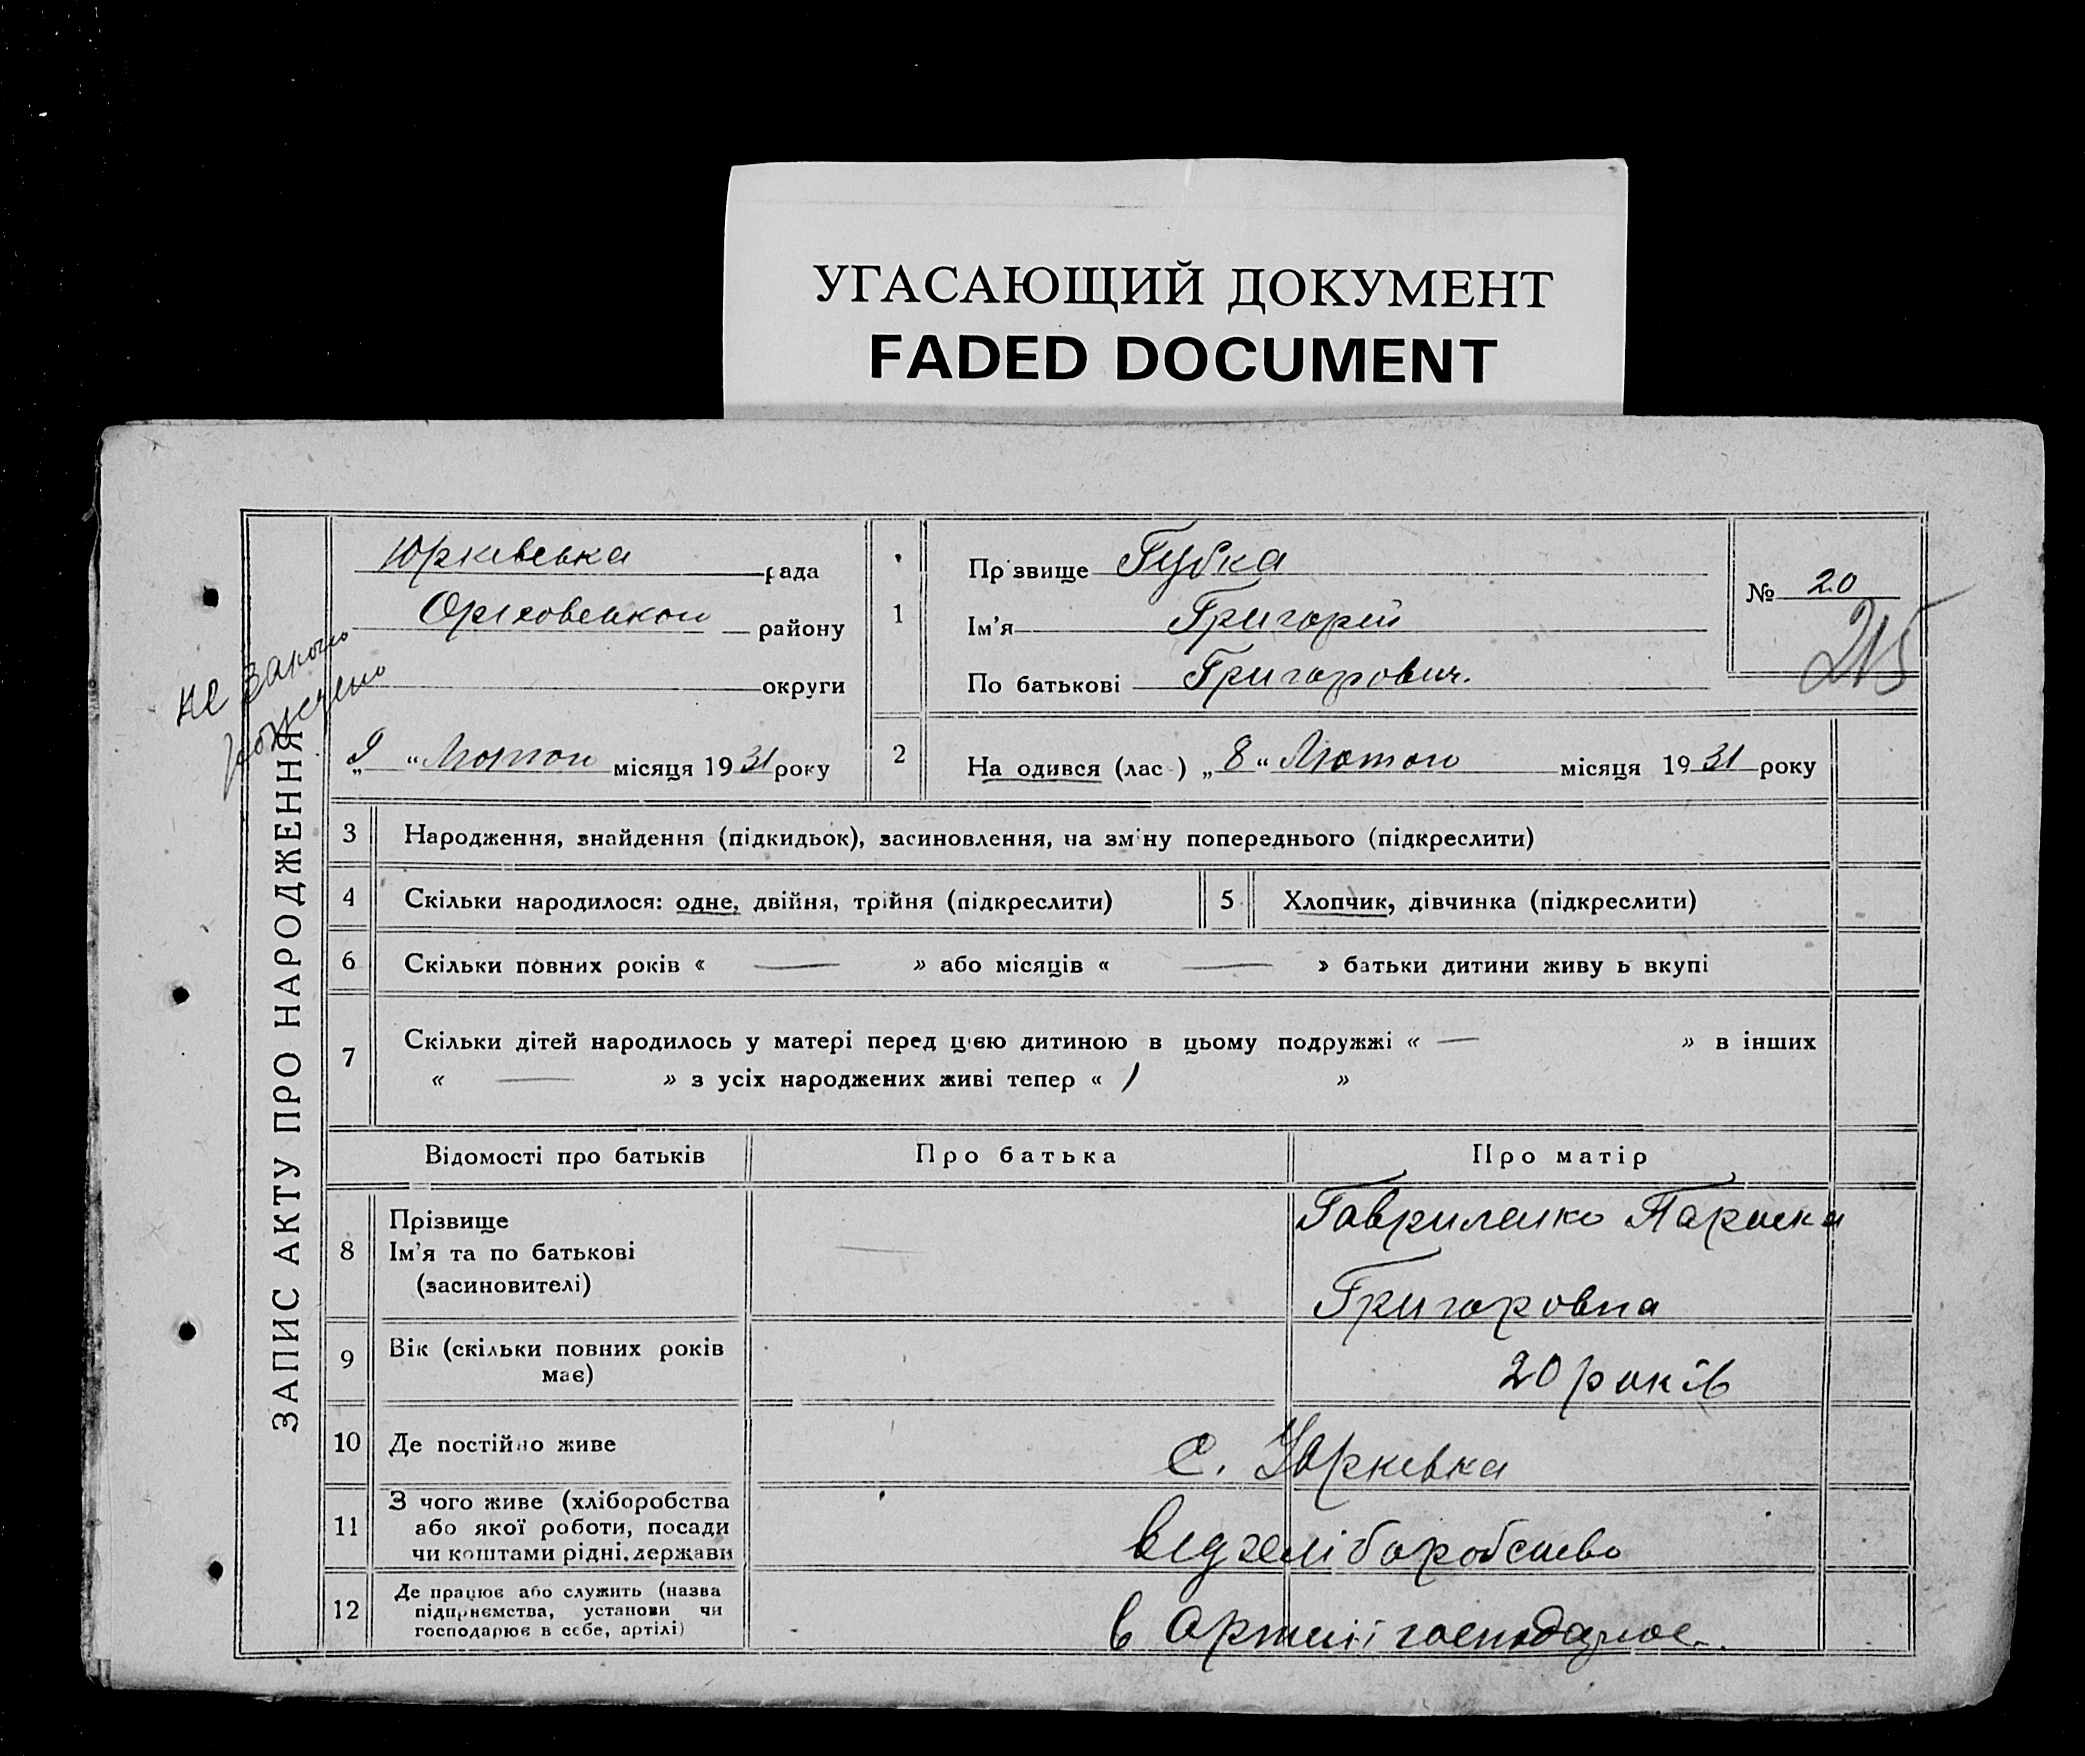 УГАСАЮЩИЙ ДОКУМЕНТ
FADED DOCUMENT
ЗАПИС АКТУ ПРО НАРОДЖЕННЯ
не законно
рожчено
Юрківська рада
Оріховської району
округи
„9“ Лютого місяця 1931 року
1
Прізвище Губка
Ім'я Григорій
По батькові Григорович.
№ 20
215
2
На одився (лас ) „8“ Лютого місяця 1931 року
3 Народження, знайдення (підкидьок), засиновлення, на зміну попереднього (підкреслити)
4 Скільки народилося: одне, двійня, трійня (підкреслити)
5 Хлопчик, дівчинка (підкреслити)
6 Скільки повних років « — » або місяців « — » батьки дитини живу ь вкупі
7 Скільки дітей народилось у матері перед цією дитиною в цьому подружжі « — » в інших
« — » з усіх народжених живі тепер « 1 »
Відомості про батьків Про батька Про матір
8 Прізвище
Ім'я та по батькові
(засиновителі)
Гавриленко Параска
Григоровна
9 Вік (скільки повних років
має)
20 років
10 Де постійно живе
с. Юрківка
11 З чого живе (хліборобства
або якої роботи, посади
чи коштами рідні, держави
від хеліборобства
12 Де працює або служить (назва
підприємства, установи чи
господарює в себе, артілі)
в артилі господарює.